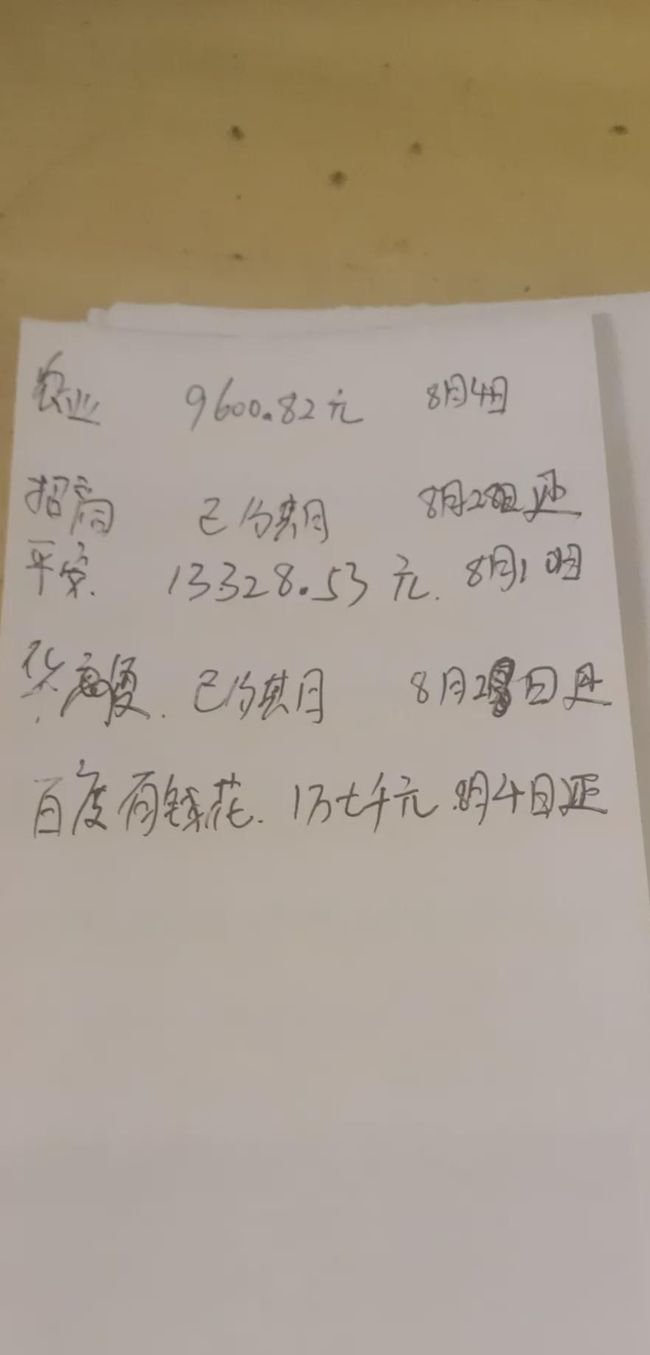 农业 9600.82元 8月4日
招商 已分期 8月28日还
平安. 13328.53元. 8月10日
已分期 8月28日还
百度有钱花. 1万七千元 8月4日还